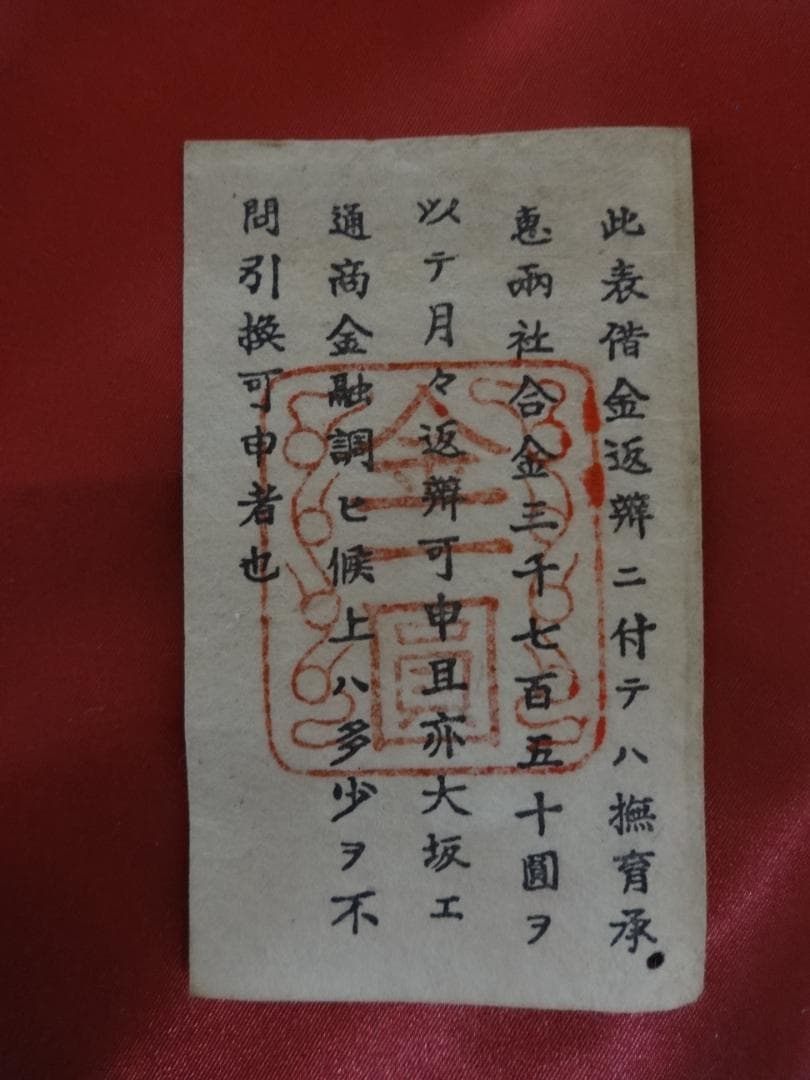 此表借金返辨ニ付テハ撫育承
恵兩社合金三千七百五十圓ヲ
以テ月々返辨可申且亦大坂エ
通商金融調ヒ候上ハ多少ヲ不
問引換可申者也
金一圓